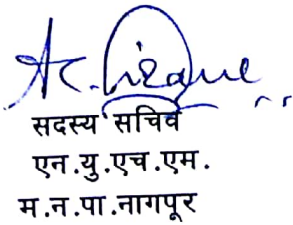 सदस्य सचिव
एन.यु.एच.एम.
म.न.पा.नागपूर